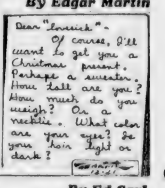 By Edgar Martin
Dear "lovesick" -
Of course, I'll
want to get you a
Christmas present.
Perhaps a sweater.
How tall are you?
How much do you
weigh? Or a
necktie. What color
are your eyes? Is
your hair light or
dark?